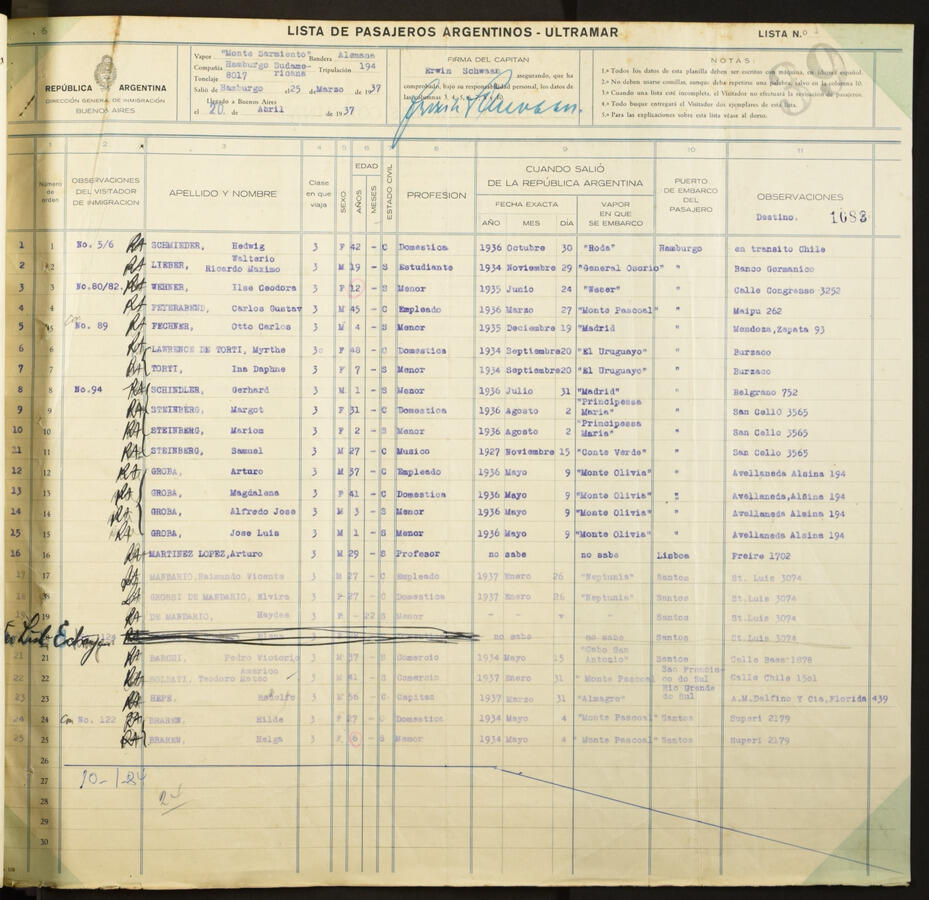 6
LISTA DE PASAJEROS ARGENTINOS - ULTRAMAR
LISTA N.º
REPÚBLICA ARGENTINA
DIRECCIÓN GENERAL DE INMIGRACIÓN
BUENOS AIRES
Vapor "Monte Sarmiento" Bandera Alemana
Compañia Hamburgo Sudame- Tripulación 194
Tonelaje 8017 ricana
Salió de Hamburgo el 25 de Marzo de 1937
Llegado a Buenos Aires
el 20 de Abril de 1937
FIRMA DEL CAPITAN
Erwin Schwaan asegurando, que ha
comprobado, bajo su responsabilidad personal, los datos de
las columnas 3, 4, 5,
NOTAS:
1.ª Todos los datos de esta planilla deben ser escritos con máquina, en idioma español.
2.ª No deben usarse comillas, aunque deba repetirse una palabra, salvo en la columna 10.
3.ª Cuando una lista esté incompleta, el Visitador no efectuará la revisación de pasajeros.
4.ª Todo buque entregará el Visitador dos ejemplares de esta lista.
5.ª Para las explicaciones sobre esta lista véase al dorso.
1 2 3 4 5 6 8 9 10 11
Número de orden
OBSERVACIONES DEL VISITADOR DE INMIGRACION
APELLIDO Y NOMBRE
Clase en que viaja
SEXO
EDAD
AÑOS
MESES
ESTADO CIVIL
PROFESION
CUANDO SALIÓ
DE LA REPÚBLICA ARGENTINA
FECHA EXACTA
AÑO MES DÍA
VAPOR EN QUE SE EMBARCO
PUERTO DE EMBARCO DEL PASAJERO
OBSERVACIONES
Destino. 1683
1 1 No. 5/6 RA SCHMIEDER, Hedwig 3 F 42 - C Domestica 1936 Octubre 30 "Roda" Hamburgo en transito Chile
2 2 RA LIEBER, Walterio Ricardo Maximo 3 M 19 - S Estudiante 1934 Noviembre 29 "General Osorio" " Banco Germanico
3 3 No.80/82. RA WEHNER, Ilse Ceodora 3 F 12 - S Menor 1935 Junio 24 "Weser" " Calle Congresso 3252
4 4 RA FEYERABEND, Carlos Gustav 3 M 45 - C Empleado 1936 Marzo 27 "Monte Pascoal" " Maipu 262
5 5 No. 89 RA FECHNER, Otto Carlos 3 M 4 - S Menor 1935 Deciembre 19 "Madrid " Mendoza,Zapata 93
6 6 RA LAWRENCE DE TORTI, Myrthe 3 F 48 - C Domestica 1934 Septiembre20 "El Uruguayo" " Burzaco
7 7 RA TORTI, Ina Daphne 3 F 7 - S Menor 1934 Septiembre20 "El Uruguayo" " Burzaco
8 8 No.94 RA SCHINDLER, Gerhard 3 M 1 - S Menor 1936 Julio 31 "Madrid" " Belgrano 752
9 9 RA STEINBERG, Margot 3 F 31 - C Domestica 1936 Agosto 2 "Principessa Maria" " San Cello 3565
10 10 RA STEINBERG, Marion 3 F 2 - S Menor 1936 Agosto 2 "Principessa Maria" " San Cello 3565
11 11 RA STEINBERG, Samuel 3 M 27 - C Musico 1927 Noviembre 15 "Conte Verde" " San Cello 3565
12 12 RA GROBA, Arturo 3 M 37 - C Empleado 1936 Mayo 9 "Monte Olivia" " Avellaneda Alsina 194
13 13 RA GROBA, Magdalena 3 F 41 - C Domestica 1936 Mayo 9 "Monte Olivia" " Avellaneda,Alsina 194
14 14 RA GROBA, Alfredo Jose 3 M 3 - S Menor 1936 Mayo 9 "Monte Olivia" " Avellaneda Alsina 194
15 15 RA GROBA, Jose Luis 3 M 1 - S Menor 1936 Mayo 9 "Monte Olivia" " Avellaneda Alsina 194
16 16 RA MARTINEZ LOPEZ,Arturo 3 M 29 - S Profesor no sabe no sabe Lisboa Freire 1702
17 17 RA MANDARIO,Raimundo Vicente 3 M 27 - C Empleado 1937 Enero 26 "Neptunia" Santos St. Luis 3074
18 RA GROSSI DE MANDARIO, Elvira 3 F 27 - C Domestica 1937 Enero 26 "Neptunia" Santos St.Luis 3074
19 19 RA DE MANDARIO, Haydee 3 - 22 S Menor - - - Santos St.Luis 3074
no sabe no sabe Santos St.Luis 3074
21 21 RA Pedro Victorio 3 M 37 - S Comercio 1934 Mayo 15 "Cabo San Antonio" Santos Calle Baez 1878
22 22 RA Teodoro Mateo Americo 3 M 41 - S Comercio 1937 Enero 31 " Monte Pascoal San Francisco do Sul Calle Chile 1501
23 23 RA HEPE, Rodolfo 3 M 56 - C Capitan 1937 Marzo 31 "Almagro" Rio Grande do Sul A.M.Delfino Y Cia,Florida 439
24 24 Con No. 122 RA BRAREN, Hilde 3 F 27 - C Domestica 1934 Mayo 4 "Monte Pascoal" Santos Superi 2179
25 25 RA BRAREN, Helga 3 F 6 - S Menor 1934 Mayo 4 " Monte Pascoal" Santos Superi 2179
26
27
28
29
30